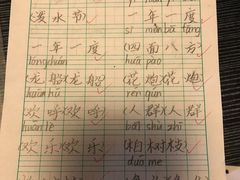 (泼水节)(一年一度
sì miàn bā fāng
一年一度)(四面八方
lóng chuán huā pào
(龙船)(龙船)(花炮)(花炮
huān hū rén qún
(欢呼)(欢呼)(人群)(人群
huān lè bǎi shù zhī
(欢乐)(欢乐)(柏树枝)
duǒ me